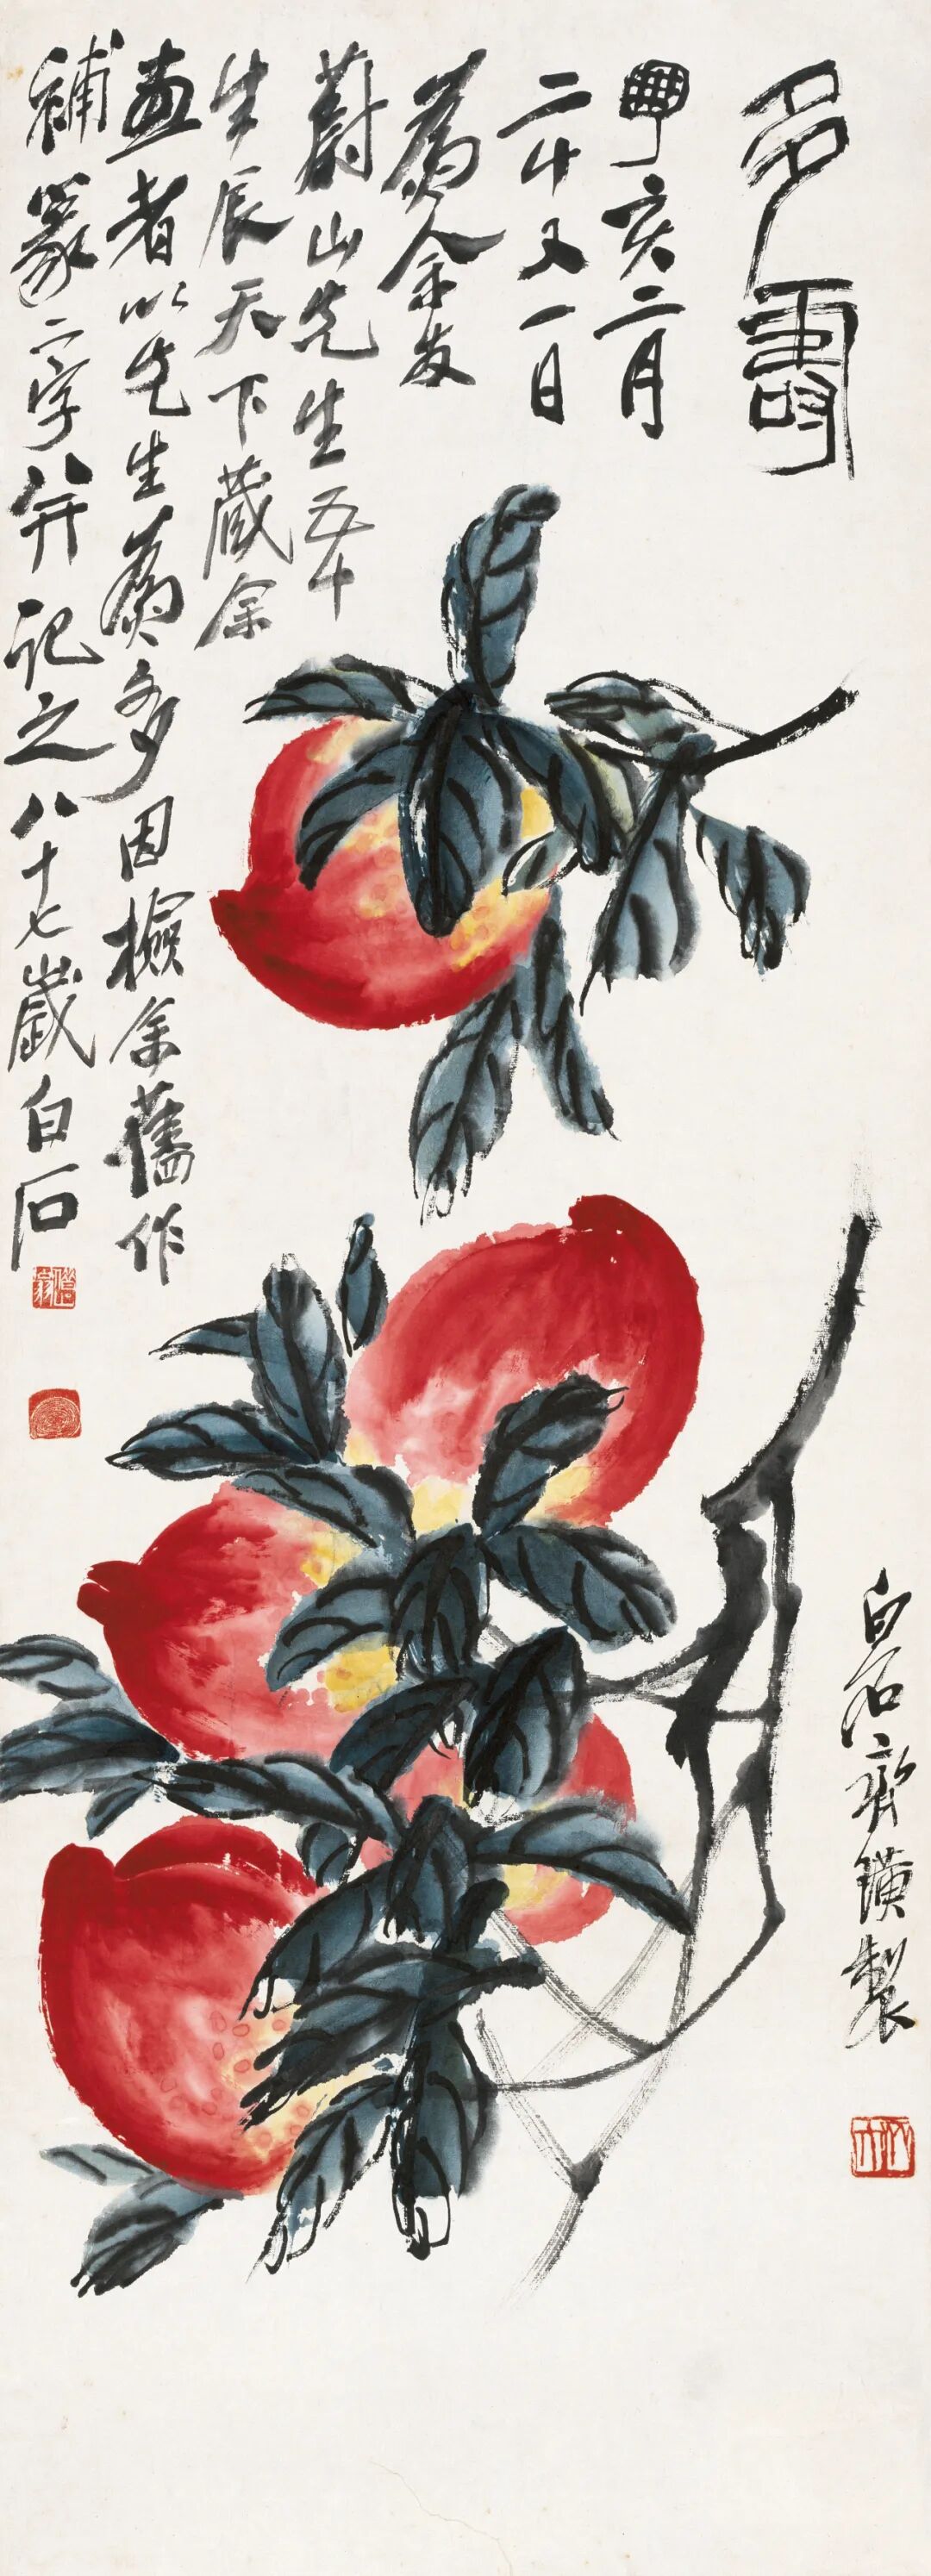 多壽
丁亥二月
二十又一日
為余友
蔚山先生五十
生辰天下藏余
畫者以先生為多因撿余舊作
補篆二字并記之八十七歲白石
借山翁
白石齊璜製